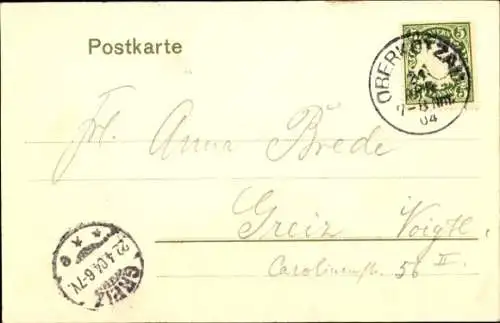 Postkarte
5
BAYERN
5
OBERKOTZAU
21.
APR.
7-8 Nm.
04
Frl. Anna Brede
Greiz Voigtl.
Carolinenstr. 56 II.
GREIZ
22.4.04.6-7V.
* * e